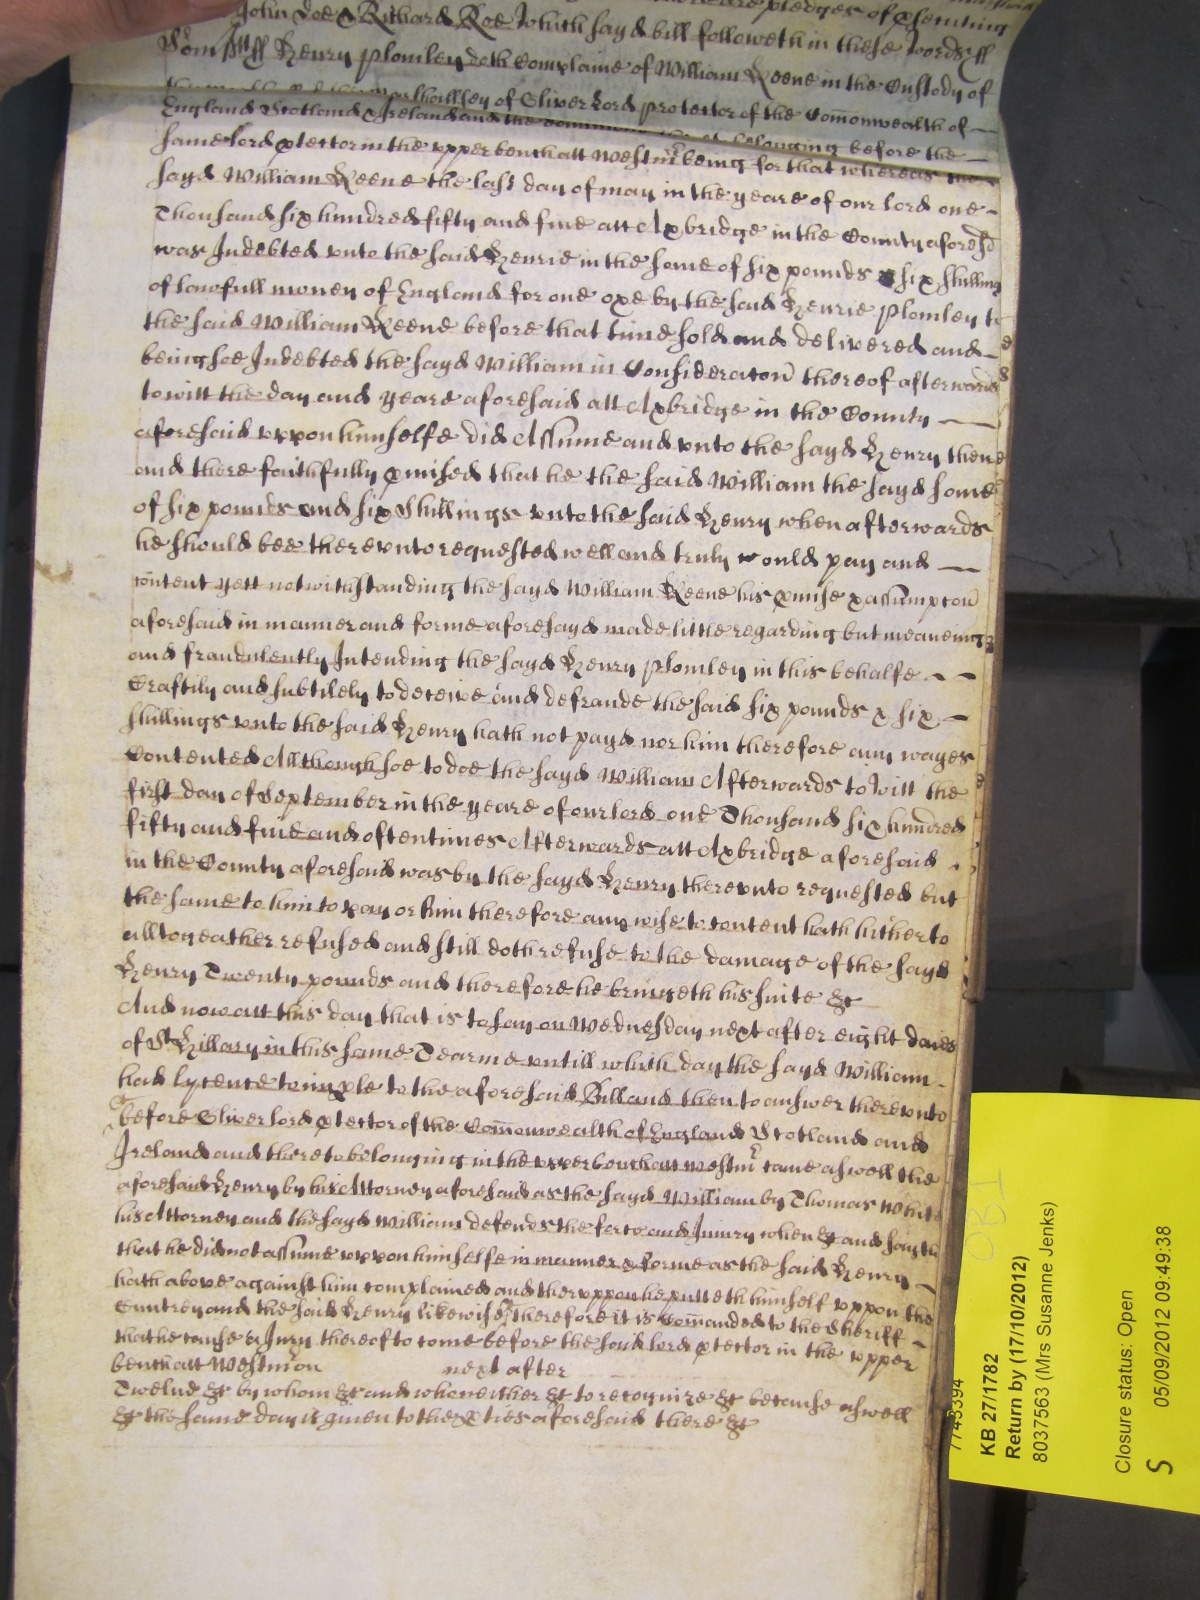 pledges of p̱senting
John Doe & Richard Roe which sayd bill followeth in these words ss
Som̃sett ss Henry Plomley doth Complaine of William Keene in the Custody of
the marshallsey of Oliver Lord protector of the Com̄onwealth of
England Scotland & Ireland and the dominions belonging before the
same lord p̱tector in the vpper bench att Westmr being for that whereas the
sayd William Keene the last day of may in the yeare of our lord one
Thousand six hundred fifty and five att Axbridge in the County aforesd
was Indebted vnto the said Henrie in the some of six pounds & six shillings
of lawfull money of England for one oxe by the said Henrie Plomley to
the said William Keene before that time sold and delivered and
being soe Indebted the sayd William in Consideracon̄ thereof afterwards
to witt the day and yeare aforesaid att Axbridge in the County
aforesaid vppon himselfe did Assume and vnto the sayd Henry then
and there faithfully p̱mised that he the said William the sayd some
of six pounds and six Shillings vnto the said Henry when afterwards
he should bee therevnto requested well and truly would pay and
content yett notwithstanding the sayd William Keene his p̱mise & assumpcon̄
aforesaid in manner and forme aforesayd made little regarding but meaneing
and fraudulently Intending the sayd Henry Plomley in this behalfe
Craftily and subtilely to deceive and defraude the said six pounds & six
shillings vnto the said Henry hath not payd nor him therefore any wayes
Contented Although soe to doe the sayd William Afterwards to Witt the
first day of September in the yeare of our lord one Thousand six hundred
fifty and five and oftentimes Afterwards att Axbridge aforesaid
in the County aforesaid was by the sayd Henry therevnto requested but
the same to him to pay or him therefore any wise to content hath hitherto
alltogeather refused and still doth refuse to the damage of the sayd
Henry Twenty pounds and therefore he bringeth his suite &c
And now att this day that is to say on Wednesday next after eight daies
of St Hillary in this same Tearme vntill which day the sayd William
had lycence to imple to the aforesaid Bill and then to answer therevnto
before Oliver lord p̱tector of the Com̄onwealth of England Scotland and
Ireland and thereto belonging in the vpper bench att Westmr came aswell the
aforesaid Henry by his Attorney aforesaid as the sayd William by Thomas White
his Attorney and the sayd William defends the force and Iniury when &c and saith
that he did not assume vppon himselfe in manner & forme as the said Henry
hath above against him complained and therevppon he putteth himself vppon the
Cuntrey and the said Henry likewise therefore it is Com̄anded to the Sheriff
that he cause a Jury thereof to come before the said lord p̱tector in the vpper
bench att Westmr on next after
Twelve &c by whom &c and who neither &c to recognize &c because aswell
&c the same day is given to the p̱ties aforesaid there &c
7743394
KB 27/1782
Return by (17/10/2012)
8037563 (Mrs Susanne Jenks)
Closure status: Open
05/09/2012 09:49:38
S
OBI